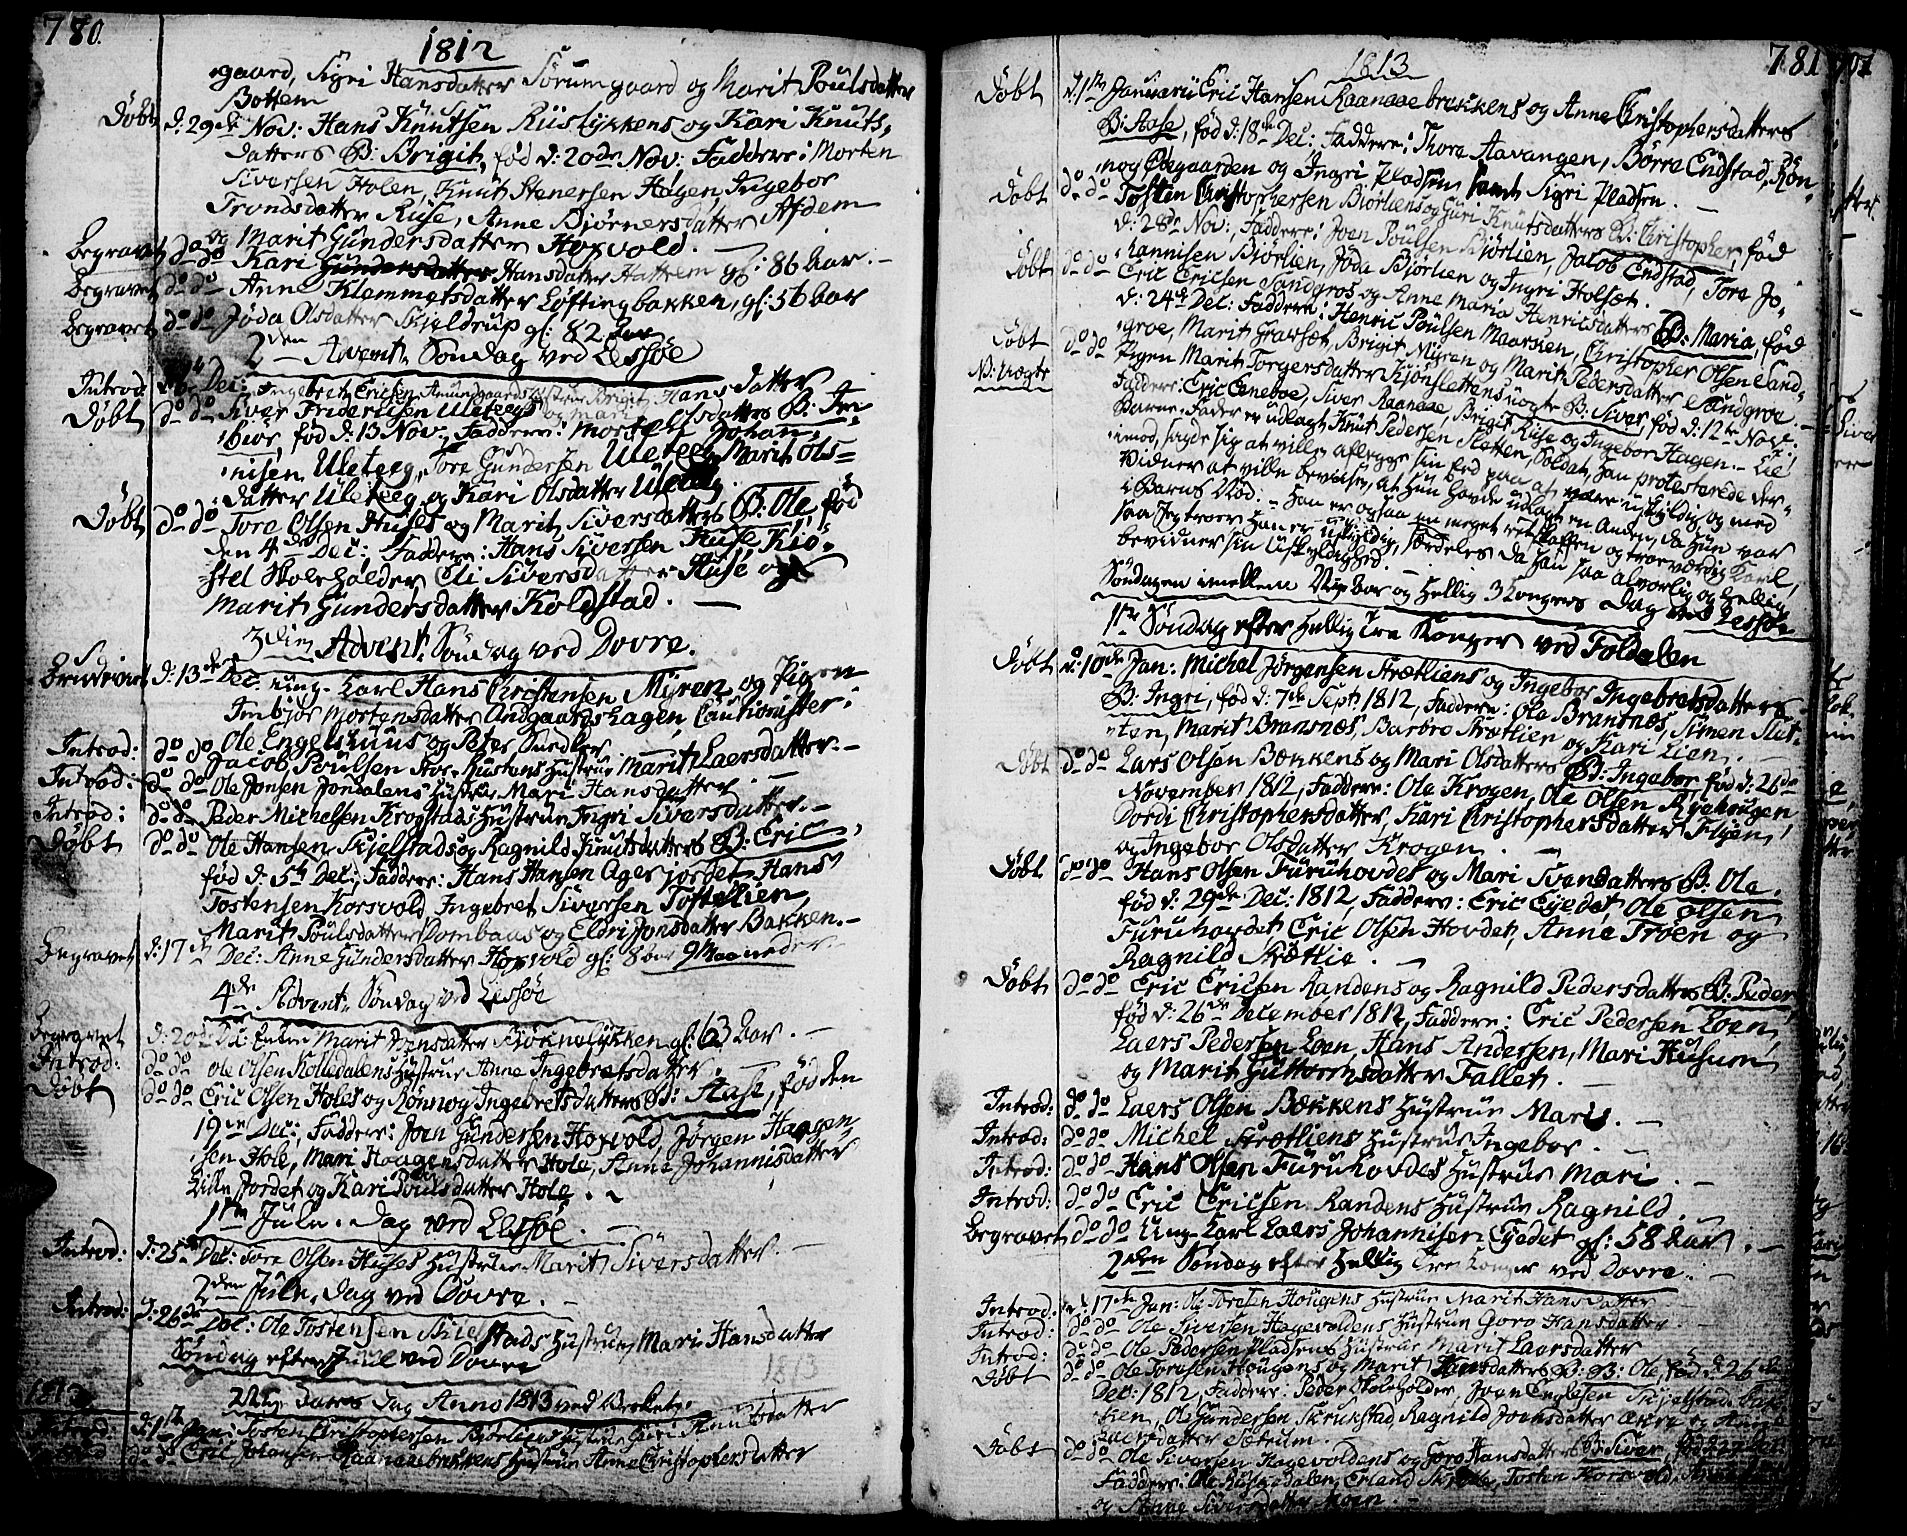 780.
1812
gaard, Sigri Hansdatter Sørumgaard og Marit Poulsdatter
Bottem
Døbt d: 29de Nov: Hans Knutsen Riislykkens og Kari Knuts-
datters B: Brigit, fød d: 20de Nov: Faddere: Morten
Siversen Holen, Knut Stenersen Hagen, Ingebor
Trondsdatter Ruse, Anne Bjørnersdatter Afdem
og Marit Gundersdatter Hoxvold.
Begravet do do Kari Gundersdatter Hansdatter Hattrem gl: 86 Aar.
Begravet do do Anne Klemmetsdatter Løftingbakken, gl: 56 Aar
Begravet do do Jøda Olsdatter Skjeldrup gl: 82 Aar
2den Advent. Søndag ved Lessøe
Introd Dec: Ingebret Ericsen Amundgaards hustrue Brigit Hansdatter
Døbt do do Siver Friderichsen Uleteegs og Mari Olsdatters B: Im-
biør, fød d: 13 Nov., Faddere: Morten Johan-
nisen Uleteeg, Tore Gundersen Uleteeg, Marit Ols-
datter Uleteeg og Kari Olsdatter Uleteeg.
Døbt do do Tore Olsen Huses og Marit Siversdatters B: Ole, fød
den 4de Dec: Faddere: Hans Siversen Huse, Kiø-
stel Skoleholder, Eli Siversdatter Huse og
Marit Gundersdatter Koldstad.
3die Advent. Søndag ved Dovre.
Brudeviet d: 13de Dec: ung-Karl Hans Christensen Myren og Pigen
Imbjør Mortensdatter Andgaardshagen, Cautionister:
Ole Engelshuus og Peter Snedker
Introd: do do Jacob Poulsen Stor-Rustens Hustrue Marit Laersdatter.
Introd: do do Ole Jonsen Jondalens hustrue Mari Hansdatter
Introd: do do Peder Michelsen Krogstads Hustrue Ingri Siversdatter.
Døbt do do Ole Hansen Skjelstads og Ragnild Knutsdatters B: Eric,
fød d: 5te Dec:, Faddere: Hans Hansen Agerjordet, Hans
Tostensen Korsvold, Ingebret Siversen Toftelien,
Marit Poulsdatter Dombaas og Eldri Jonsdatter Bakken.
Begravet d: 17de Dec: Anne Gundersdatter Hoxvold gl: 8 Aar 9 Maaneder
4de Advent. Søndag ved Lessøe
Begravet d: 20de Dec: Enken Marit Hansdatter Bjørknelykken gl: 63 Aar.
Introd: do do Ole Olsen Kolledalens Hustrue Anne Ingebretsdatter.
Døbt do do Eric Olsen Holes og Rønnog Ingebretsdatters B: Aase, fød den
19de Dec:, Faddere: Joen Gundersen Hoxvold, Jørgen Haagen-
sen Hole, Mari Hougensdatter Hole, Anne Johannisdatter
Lille Jordet og Kari Poulsdatter Hole.
1ste Jule-Dag ved Lessøe.
Introd: d: 25de Dec: Tore Olsen Huses Hustrue Marit Siversdatter.
2den Jule-Dag ved Dovre.
Introd: d: 26de Dec: Ole Tostensen Skielstads Hustrue Mari Hansdatter
Søndag efter Juul ved Dovre
1813
1813 Nyt Aars Dag Anno 1813 ved Verket.
Introd: d: 1ste Jan: Tosten Christophersen Bjørliens Hustrue Guri Knutsdatter
Introd do do Eric Johansen Raanaaebrækkens Hustrue Anne Christophersdatter
1813
781
Døbt d: 1ste Januarii Eric Hansen Raanaaebrækkens og Anne Christophersdatters
B: Aase, fød d: 18de Dec: Faddere: Thore Aavangen, Børre Endstad, Røn-
nog Ødegaarden og Ingri Pladsen samt Sigri Pladsen.
Døbt do do Tosten Christophersen Bjørliens og Guri Knutsdatters B: Christopher, fød
d: 28de Nov:, Faddere: Joen Poulsen Bjørlien, Jacob Endstad, Tore Jo-
hannisen Bjørlien, Jøda Bjørlien og Ingri Holsæt.
Døbt do do Eric Ericsen Sandgroes og Anne Maria Henricsdatters B: Maria, fød
d: 24de Dec: Faddere: Henric Poulsen Maarsien, Christopher Olsen Sand-
groe, Marit Gravsæt, Brigit Myren og Marit Pedersdatter Sandgroe
Døbt do do Pigen Marit Torgersdatter Kjønslettens uægte B: Siver, fød d: 12te Nov:
N: Uægte
Faddere: Eric Enebоe, Siver Raanaae, Brigit Ruse og Ingebor Hagen.
Barne-Fader er udlagt Knut Pedersen Sletten, Soldat, han protesterede der-
imod, sagde sig at ville aflegge sin Eed paa at være uskyldig og med
Vidner at ville bevise, at hun havde udlagt en Anden, da hun var
i Barns Nød. Han er ogsaa en meget retskaffen og troeværdig Karl,
saa jeg troer han er uskyldig, særdeles da han saa alvorlig og hellig
bevidner sin Uskyldighed.
Søndagen imellem Nytaar og Hellig 3 Kongers Dag ved Lessøe
1ste Søndag efter Hellig Tre Konger ved Foldalen
Døbt d: 10de Jan: Michel Jørgensen Strætliens og Ingebor Ingebretsdatters
B: Ingri, fød d: 7de Sept: 1812, Faddere: Ole Brandnæs, Simen Slet-
ten, Marit Brandsnæs, Barbro Strætlien og Kari Lien.
Døbt do do Lars Olsen Bækkens og Mari Olsdatters B: Ingebor fød d: 26de
November 1812, Faddere: Ole Krogen, Ole Olsen Ryehougen
Dordi Christophersdatter, Kari Christophersdatter Flyen,
og Ingebor Olsdatter Krogen.
Døbt do do Hans Olsen Furuhovdet og Mari Svendatters B: Ole.
fød d: 29de Dec: 1812, Faddere: Eric Egedet, Ole Olsen
Furuhovdet Eric Olsen Hovdet, Anne Troen og
Ragnild Strættie.
Døbt do do Eric Ericsen Randens og Ragnild Pedersdatters B: Peder
fød d: 26de December 1812, Faddere: Eric Pedersen Loen,
Laers Pedersen Loen, Hans Andersen, Mari Husum
og Marit Guttormsdatter Fallet.
Introd: do do Laers Olsen Bækkens Hustrue Mari.
Introd: do do Michel Strætliens Hustrue Ingebor.
Introd: do do Hans Olsen Furuhovdes Hustrue Mari.
Introd: do do Eric Ericsen Randens Hustrue Ragnild.
Begravet do do Ung-Karl Laers Johannisen Egedet gl: 58 Aar.
2den Søndag efter Hellig Tre Konger ved Dovre.
Introd. d: 17de Jan: Ole Toresen Hougens Hustrue Marit Hansdatter
Introd: do do Ole Siversen Hagevoldens Hustrue Goro Hansdatter.
Introd: do do Ole Pedersen Pladsens Hustrue Marit Laersdatter
Døbt do do Ole Toresen Hougens og Marit Hansdatters B: Ole, fød d: 26de
Dec: 1812, Faddere: Peder Skoleholder, Joen Englesen Skjelstad-bak-
ken, Ole Gundersen Skrukstad Ragnild Joensdatter og Anne
Laersdatter Sætrum.
Døbt do do Ole Siversen Hagevoldens og Goro Hansdatters B: Siver, fød
Faddere: Ole Rusedalen, Erland, Tosten Korsvold,
og Anne Siversdatter Moen.